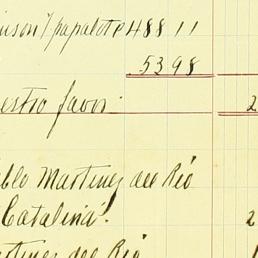 inson y papalote 488 11
5398
estro favor 2
blo Martinez del Rio
Catalina". 2
rtinez del Rio